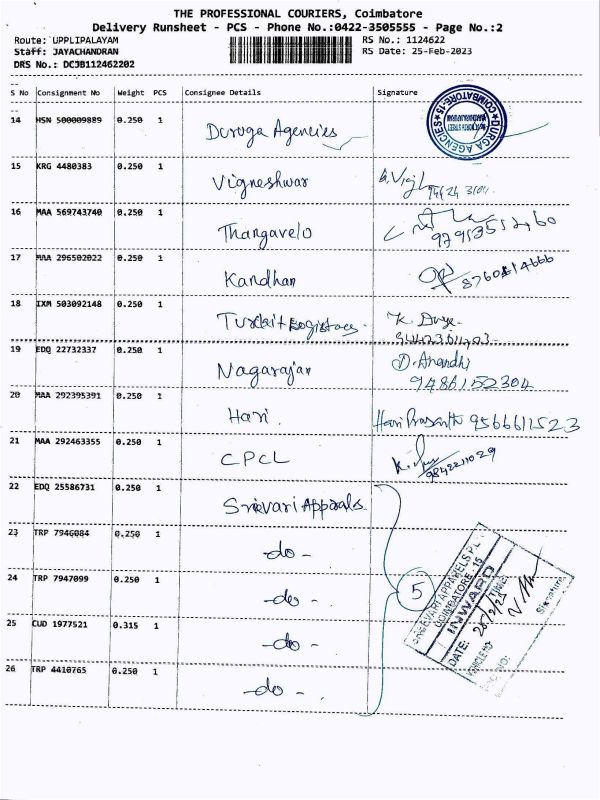 THE PROFESSIONAL COURIERS, Coimbatore
Delivery Runsheet - PCS - Phone No.:0422-3505555 - Page No.:2
Route: UPPLIPALAYAM RS No.: 1124622
Staff: JAYACHANDRAN RS Date: 25-Feb-2023
DRS No.: DCJB112462202
S No Consignment No Weight PCS Consignee Details Signature
14 HSN 500009889 0.250 1 Duruga Agencies DURGA AGENCIES COIMBATORE-15
15 KRG 4480383 0.250 1 Vigneshwar
16 MAA 569743740 0.250 1 Thangavelo
17 MAA 296502022 0.250 1 Kandhan
18 IXM 503092148 0.250 1
19 EDQ 22732337 0.250 1 Nagarajan D.Anandhi
9486152304
20 MAA 292395391 0.250 1 Hari Hari Prasanth 9566611523
21 MAA 292463355 0.250 1 CPCL 9842211029
22 EDQ 25586731 0.250 1 Srievari Apparals
23 TRP 7946084 0.250 1 -do-
24 TRP 7947099 0.250 1 -do- 5
25 CUD 1977521 0.315 1 -do-
26 TRP 4410765 0.250 1 -do-
SREEVARI APPARELS P
COIMBATORE - 15
INWARD
DATE: TIME:
VEHICLE NO
Signature